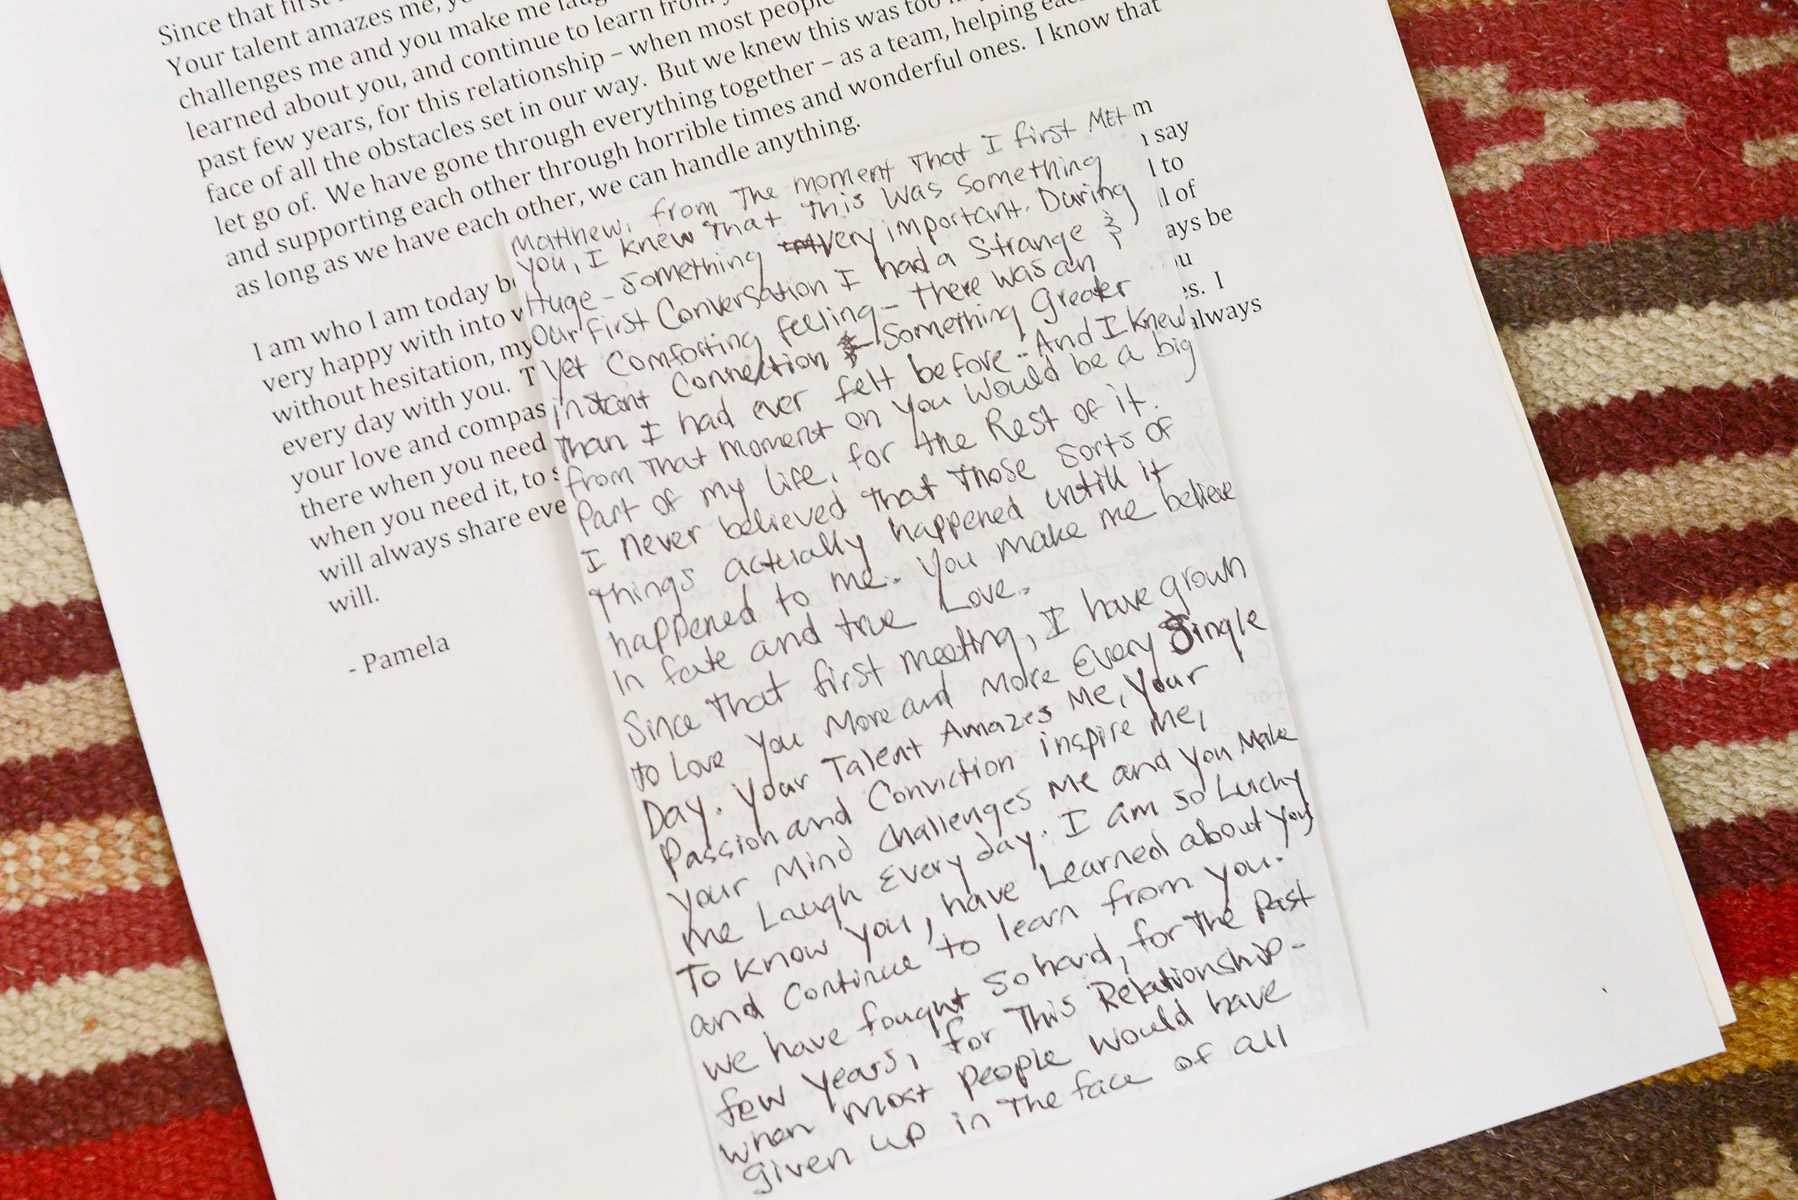 Since that first
Your talent amazes me, yo
challenges me and you make me laug
learned about you, and continue to learn from y
past few years, for this relationship – when most people
face of all the obstacles set in our way. But we knew this was too
let go of. We have gone through everything together – as a team, helping ea
and supporting each other through horrible times and wonderful ones. I know that
as long as we have each other, we can handle anything.
I am who I am today b
very happy with into w
without hesitation, my
every day with you. T
your love and compas
there when you need
when you need it, to s
will always share eve
will.
- Pamela
m
say
l to
l of
ays be
u
s. I
always
Matthew, from The moment That I first MEt
you, I knew That This Was Something
Huge - Something very important. During
Our First Conversation I had a Strange &
Yet Comforting feeling - there was an
instant Connection Something Greater
Than I had ever felt before - And I knew
from That moment on you Would be a big
Part of my life, for the Rest of it.
I never believed that those sorts of
Things actually happened untill it
happened to me. You make me believe
In fate and true Love.
Since that first meeting, I have grown
to Love you More and More Every Single
Day. Your Talent Amazes Me, Your
Passion and Conviction inspire Me,
Your Mind challenges Me and You Make
Me Laugh Every day. I am so Lucky
To know you, have Learned about you,
and Continue to learn from you.
we have fought So hard, for The past
few years, for This Relationship -
when Most People would have
given up in The face of all